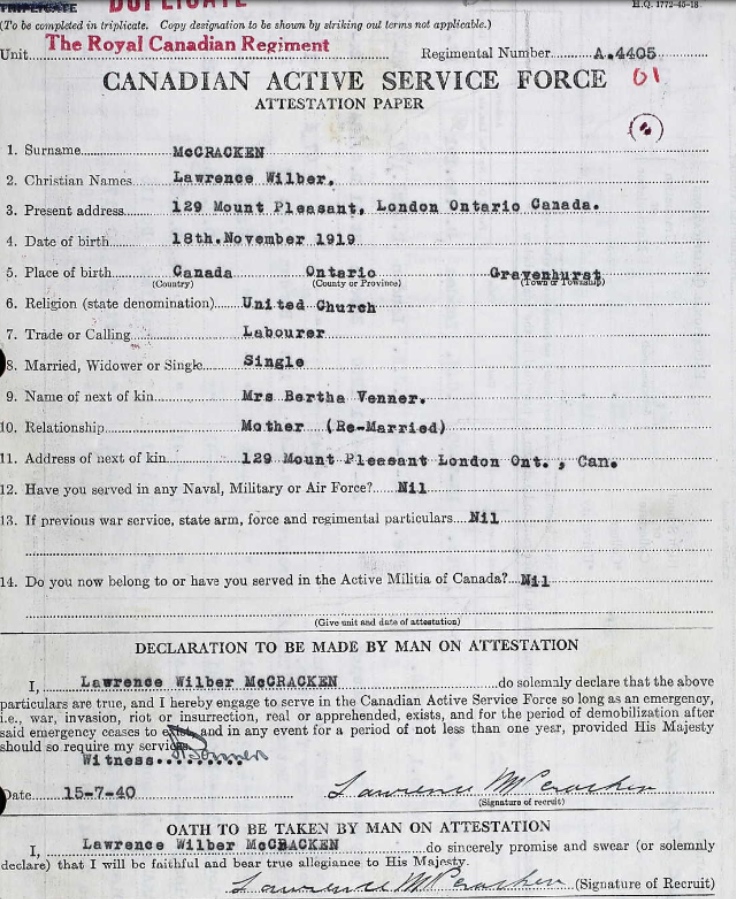 TRIPLICATE DUPLICATE H.Q. 1772-40-18
(To be completed in triplicate. Copy designation to be shown by striking out terms not applicable.)
Unit The Royal Canadian Regiment Regimental Number A.4405
CANADIAN ACTIVE SERVICE FORCE 01
ATTESTATION PAPER
1. Surname McCRACKEN
2. Christian Names Lawrence Wilber,
3. Present address 129 Mount Pleasant, London Ontario Canada.
4. Date of birth 18th.November 1919
5. Place of birth Canada Ontario Gravenhurst
(Country) (County or Province) (Town or Township)
6. Religion (state denomination) United Church
7. Trade or Calling Labourer
8. Married, Widower or Single Single
9. Name of next of kin Mrs Bertha Venner.
10. Relationship Mother (Re-Married)
11. Address of next of kin 129 Mount Pleasant London Ont., Can.
12. Have you served in any Naval, Military or Air Force? Nil
13. If previous war service, state arm, force and regimental particulars Nil
14. Do you now belong to or have you served in the Active Militia of Canada? Nil
(Give unit and date of attestation)
DECLARATION TO BE MADE BY MAN ON ATTESTATION
I, Lawrence Wilber McCRACKEN do solemnly declare that the above
particulars are true, and I hereby engage to serve in the Canadian Active Service Force so long as an emergency,
i.e., war, invasion, riot or insurrection, real or apprehended, exists, and for the period of demobilization after
said emergency ceases to exist, and in any event for a period of not less than one year, provided His Majesty
should so require my services.
Witness
Date 15-7-40 Lawrence McCracken
(Signature of recruit)
OATH TO BE TAKEN BY MAN ON ATTESTATION
I, Lawrence Wilber McCRACKEN do sincerely promise and swear (or solemnly
declare) that I will be faithful and bear true allegiance to His Majesty.
Lawrence McCracken (Signature of Recruit)